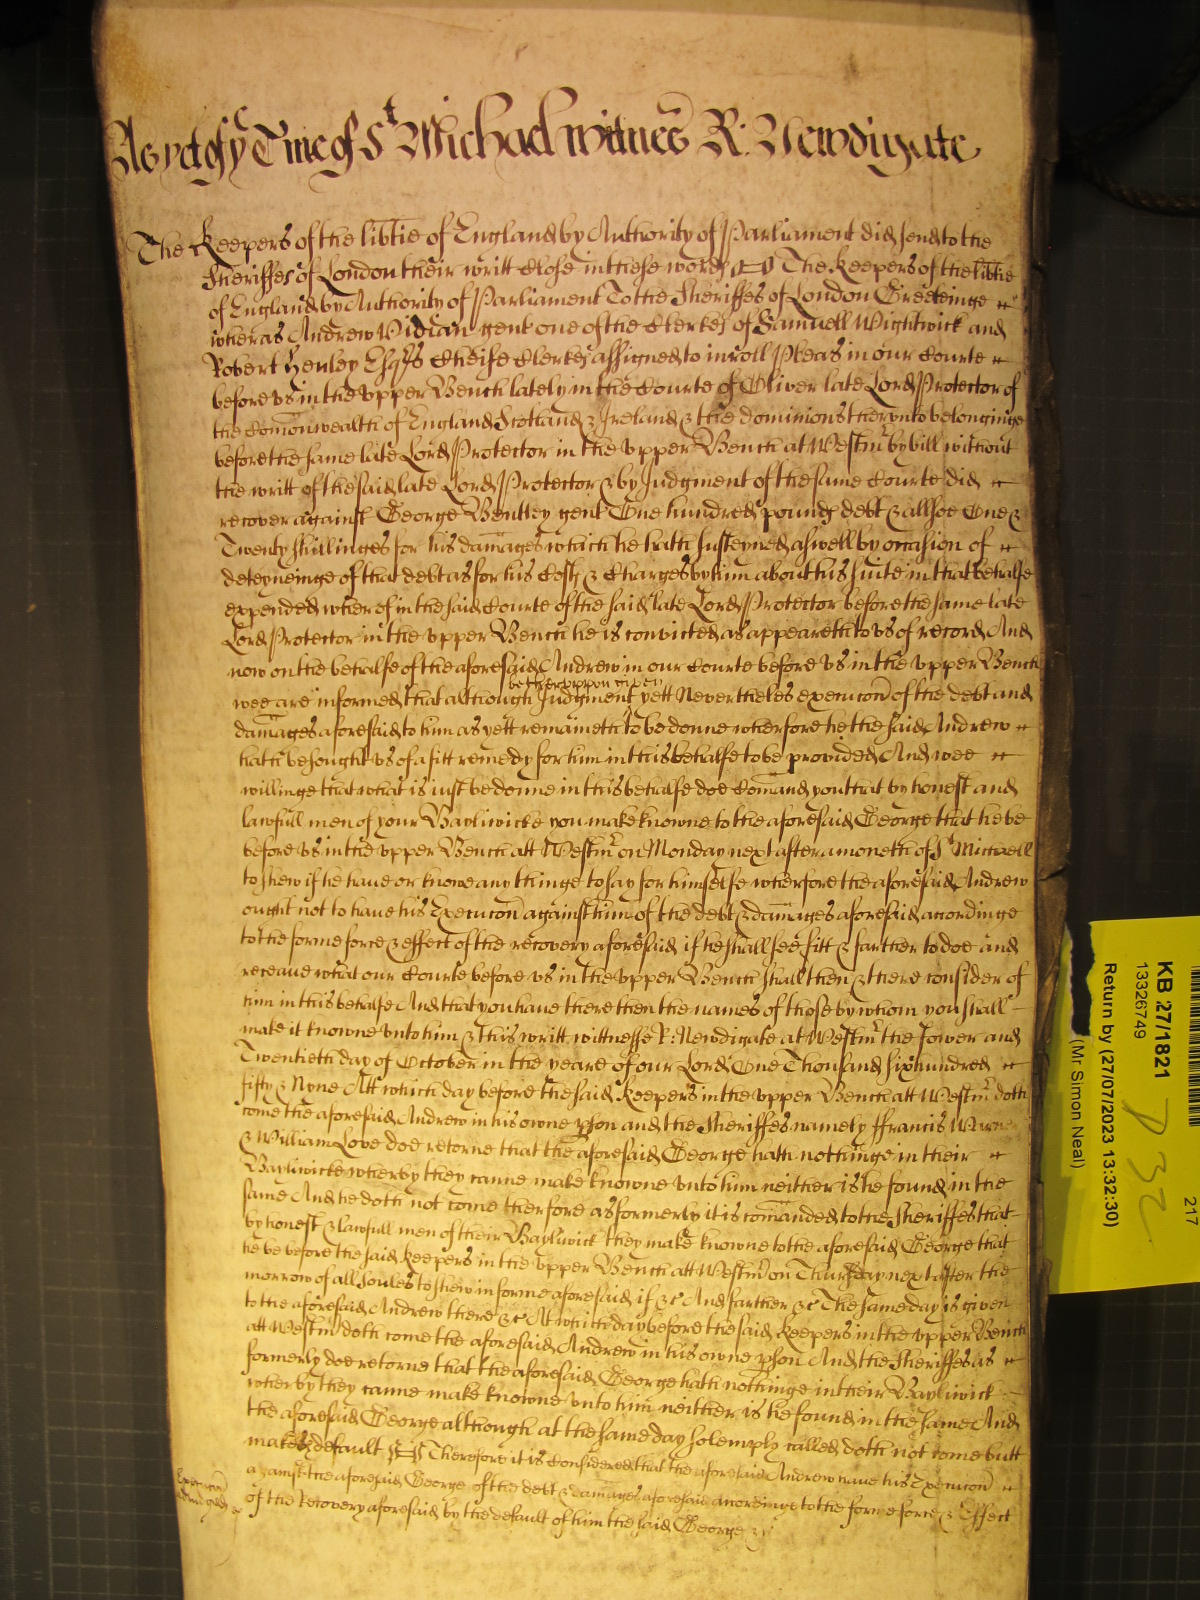 As yet of ye Tme of St Michael witnes R: Newdigate
The Keepers of the libtie of England by Authority of Parliament did send to the
Sheriffes of London their writt Close in these words ss The Keepers of the libtie
of England by Authority of Parliament To the Sheriffes of London Greeteinge
wheras Andrew Vidian gent one of the Clerkes of Samuell Wightwick and
Robert Henley Esqrs Cheife Clerkes assigned to inroll Pleas in our Courte
before vs in the vpper Bench lately in the Courte of Oliver late Lord Protector of
the Comonwealth of England Scotland & Ireland & the dominions therunto belonginge
before the same late Lord Protector in the vpper Bench at Westmr by bill without
the writt of the said late Lord Protector & by Judgment of the same Courte did
recover against George Bentley gent One hundred pounds debt & allsoe One &
Twenty shillinges for his damages which he hath susteyned aswell by occasion of
deteyneinge of that debt as for his Costs & Charges by him about his suite in that behalfe
expended wherof in the said Courte of the said late Lord Protector before the same late
Lord Protector in the vpper Bench he is convicted as appeareth to vs of record And
now on the behalfe of the aforesaid Andrew in our Courte before vs in the vpper Bench
wee are informed that although Judgment be thervppon given yett Nevertheles execucon of the debt and
damages aforesaid to him as yett remaineth to be donne wherfore he the said Andrew
hath besought vs of a fitt remedy for him in this behalfe to be provided And wee
willinge that what is iust be donne in this behalfe doe Comand you that by honest and
lawfull men of your Bayliwicke you make knowne to the aforesaid George that he be
before vs in the vpper Bench att Westmr on Monday next after a moneth of St Michaell
to shew if he haue or knowe any thinge to say for himselfe wherfore the aforesaid Andrew
ought not to haue his Execucon against him of the debt & damages aforesaid accordinge
to the forme force & effect of the recovery aforesaid if he shall see fitt & farther to doe and
receaue what our Courte before vs in the vpper Bench shall then & there consider of
him in this behalfe And that you haue there then the names of those by whom you shall
make it knowne vnto him & this writt wittnesse R: Newdigate at Westmr the fower and
Twentieth day of October in the yeare of our Lord One Thousand six hundred
fifty & Nyne Att which day before the said Keepers in the vpper Bench att Westmr doth
come the aforesaid Andrew in his owne pson and the Sheriffes namely ffrancis Warner
& William Love doe retorne that the aforesaid George hath nothinge in their
Bayliwicke wherby they canne make knowne vnto him neither is he found in the
same And he doth not come therfore as formerly it is comanded to the Sheriffes that
by honest & lawfull men of their Bayliwick they make knowne to the aforesaid George that
he be before the said Keepers in the vpper Bench att Westmr on Thursday next after the
morrow of all soules to shew in forme aforesaid if &c And farther &c The same day is given
to the aforesaid Andrew there &c At which day before the said Keepers in the vpper Bench
att Westmr doth come the aforesaid Andrew in his owne pson And the Sheriffes as
formerly doe retorne that the aforesaid George hath nothinge in their Bayliwick
wherby they canne make knowne vnto him neither is he found in the same And
the aforesaid George although at the same day solemply called doth not come butt
makes default ss Therefore it is Considered that the aforesaid Andrew haue his Execucon
against the aforesaid George of the debt & damages aforesaid accordinge to the forme force & Effect
of the Recovery aforesaid by the default of him the said George &c
KB 27/1821
13326749
Return by (27/07/2023 13:32:30)
(Mr Simon Neal)
217